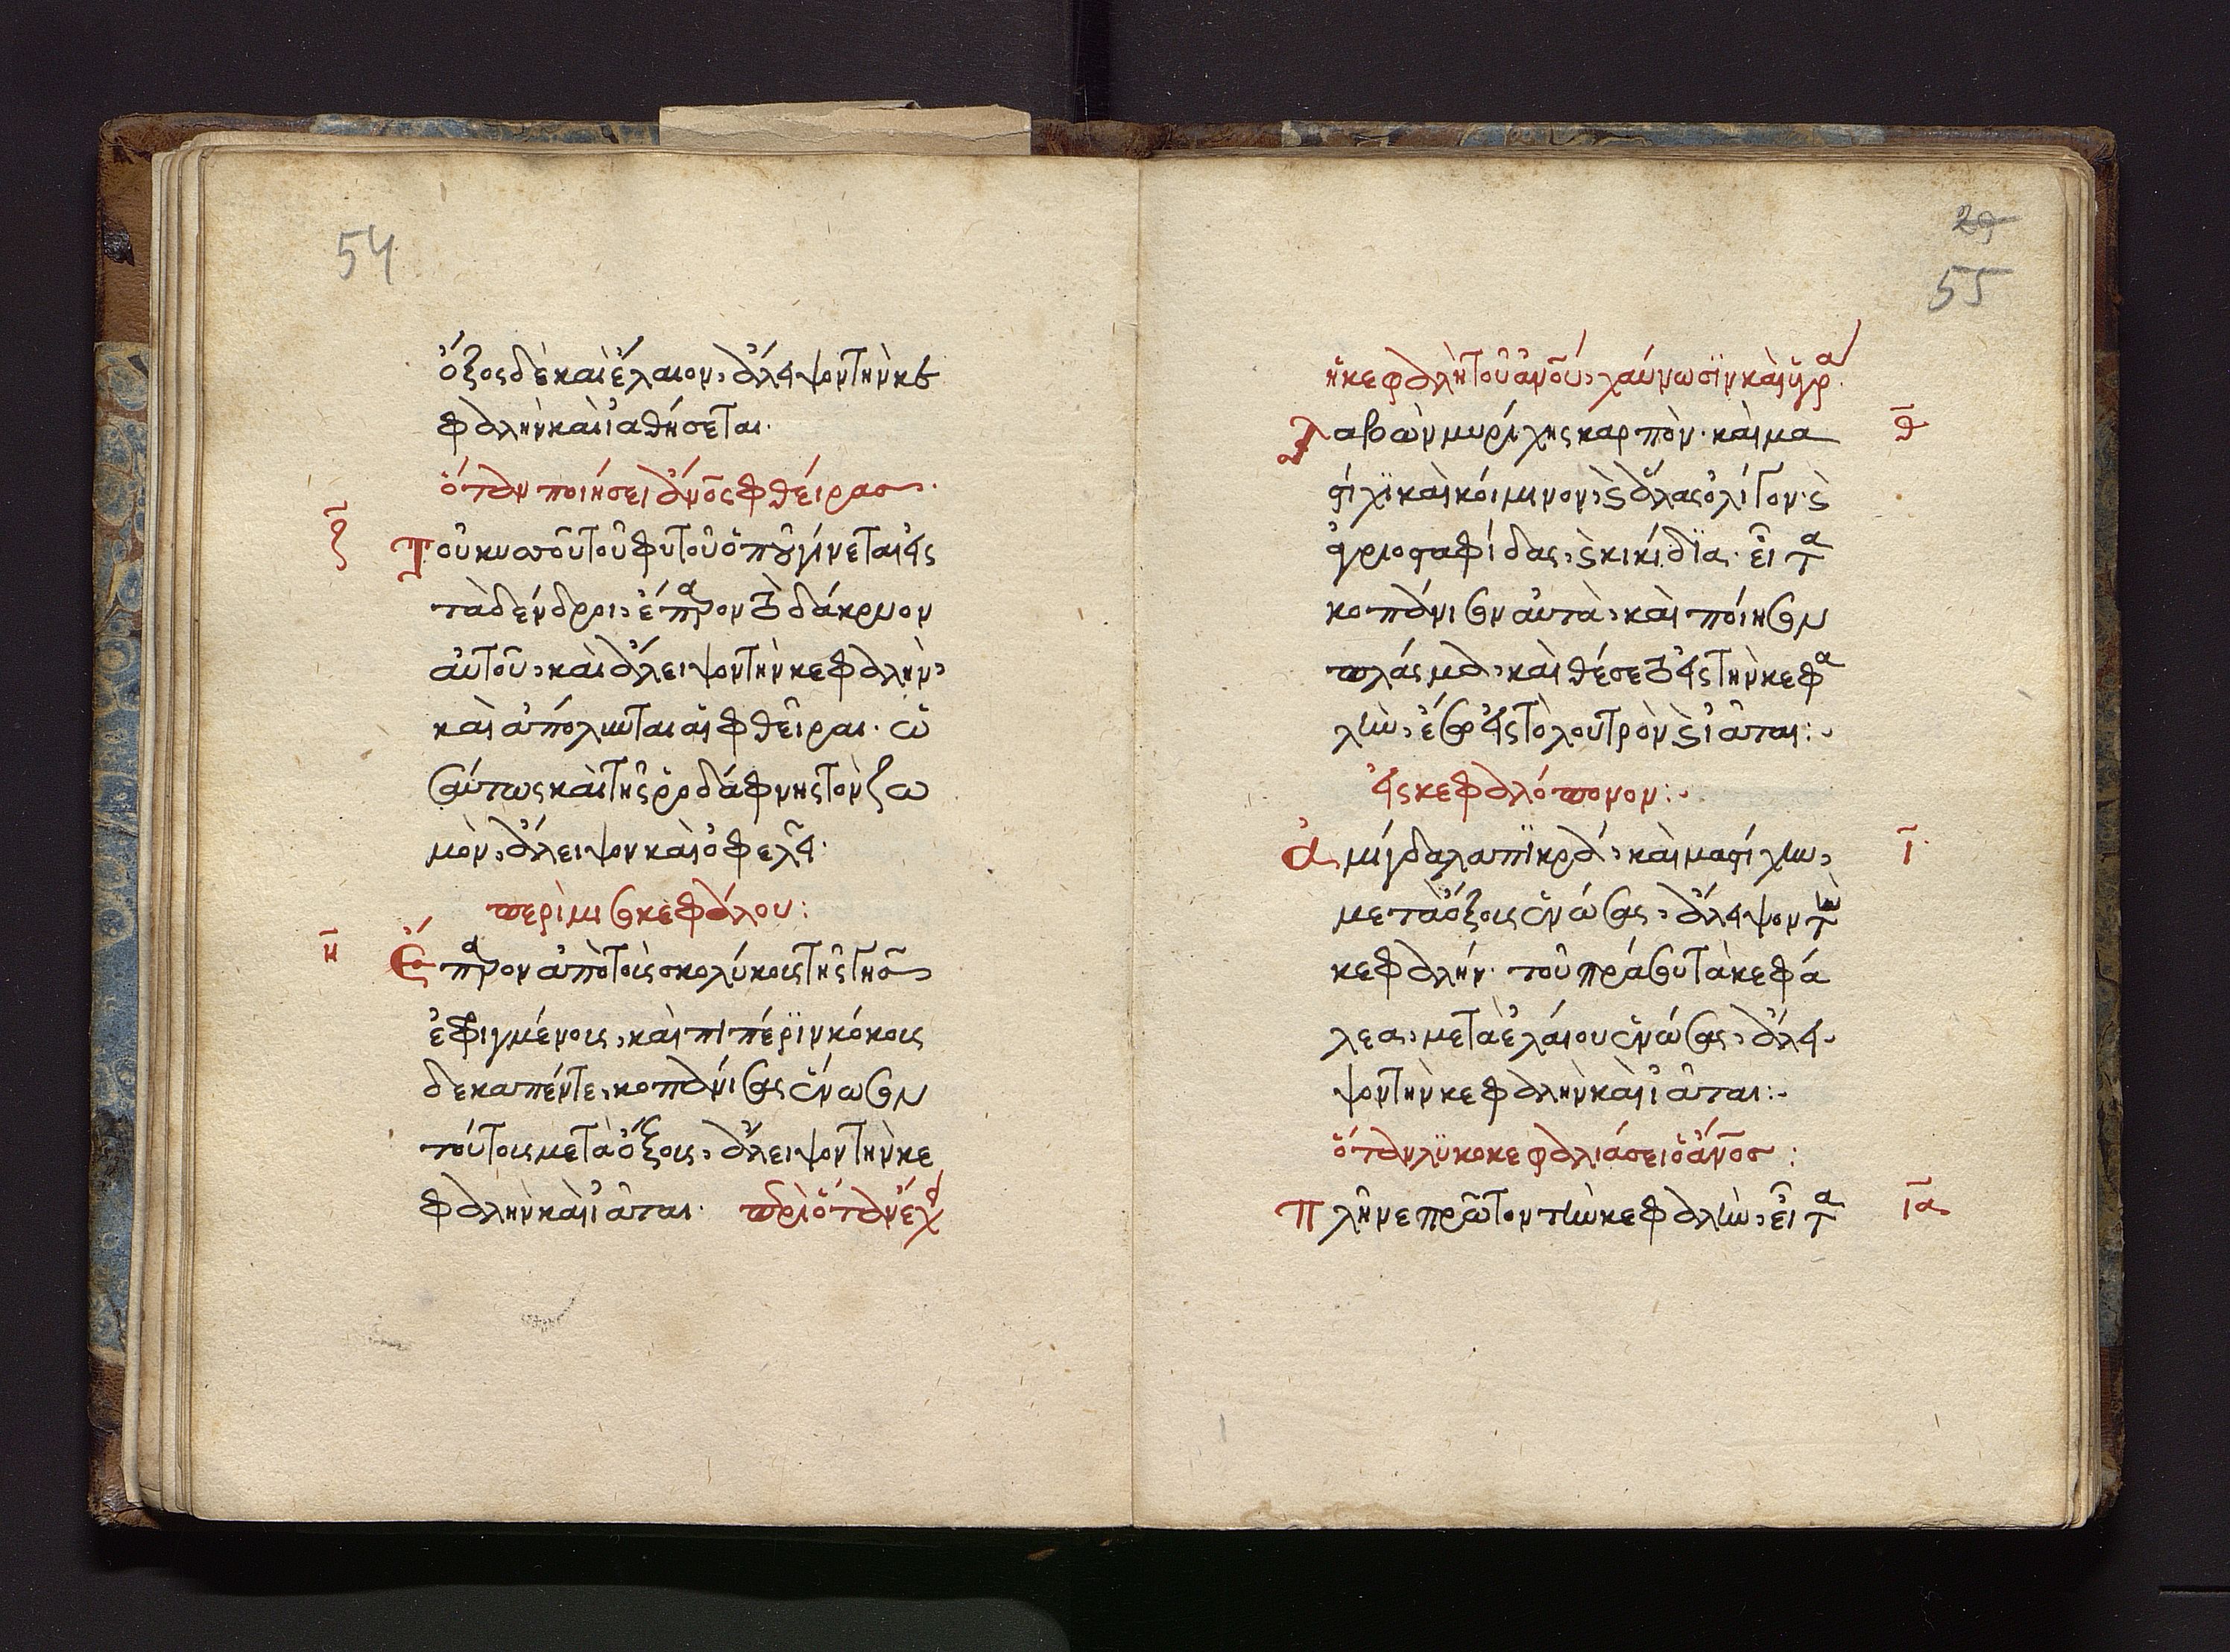 54
ὄξος δὲ καὶ ἔλαιον, ἄλειψον τὴν κε
φαλὴν καὶ ἰαθήσεται.
ὅταν ποιήσει ἄνος φθείρας.
ζ
Τοῦ κισσοῦ τοῦ φυτοῦ ὁποῦ γίνεται εἰς
τὰ δένδρη, ἔπαρον τὸ δάκρυον
αὐτοῦ, καὶ ἄλειψον τὴν κεφαλὴν,
καὶ ἀπόλυνται αἱ φθεῖραι. ὡ
σαύτως καὶ τῆς ῥοδάφνης τὸν ζω
μὸν, ἄλειψον καὶ ὀφελεῖ.
περὶ μισκεφάλου:
η
Ἔπαρον ἀπὸ τοὺς σκολύκους τῆς γῆς
ἐψιγμένους, καὶ πιπέριν κόκους
δεκαπέντε, κοπανίσας ἕνωσον
τούτους μετὰ ὄξους, ἄλειψον τὴν κε
φαλὴν καὶ ἰᾶται. περὶ ὅταν ἔχει
29
55
ἡ κεφαλὴ τοῦ ἀνου, χαύνωσϊν καὶ ὑγρα
θ
Λαβὼν μυρίκης καρπὸν. καὶ μα
στίχϊ καὶ κύμινον, καὶ ἄλας ὀλίγον, καὶ
ἀγριοσταφίδας, καὶ κικίδϊα. εἶτα
κοπάνισον αὐτὰ, καὶ ποίησον
πλάσμα, καὶ θέσε το εἰς τὴν κεφα
λὴν, ἔσω εἰς τὸ λουτρὸν καὶ ἰᾶται:
εἰς κεφαλόπονον:
ι
Ἀμύγδαλα πϊκρὰ, καὶ μαστίχην,
μετὰ ὄξους ἑνώσας, ἄλειψον τὴν
κεφαλήν. τοῦ πράσου τὰ κεφά
λεα, μετὰ ἐλαίου ἑνώσας, ἄλει
ψον τὴν κεφαλὴν καὶ ἰᾶται:
ὅταν λϋκοκεφαλιάσει ὁ ἄνος:
ια
Πλῦνε πρῶτον τὴν κεφαλὴν, εἶτα